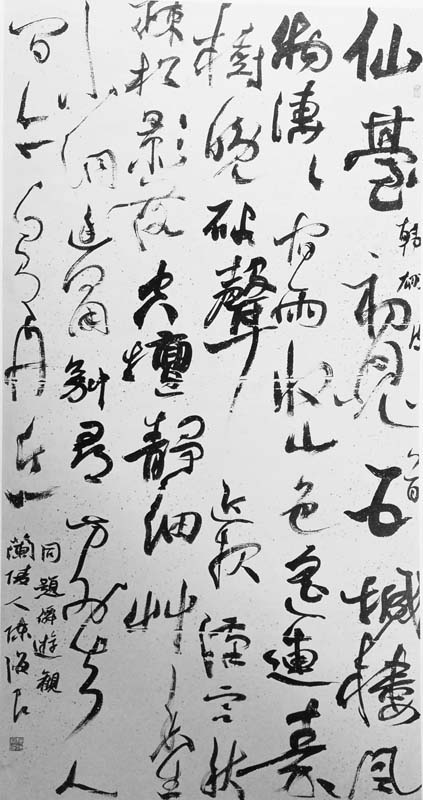 仙臺初見五城樓風
物凄凄宿雨收山色遙連秦
樹晚砧聲近報漢宮秋
疎松影落空壇靜細艸香
小洞幽何用別尋方外去人
間亦自有丹丘
韓翃詩
同題僊遊觀
蘭陵人陳海良